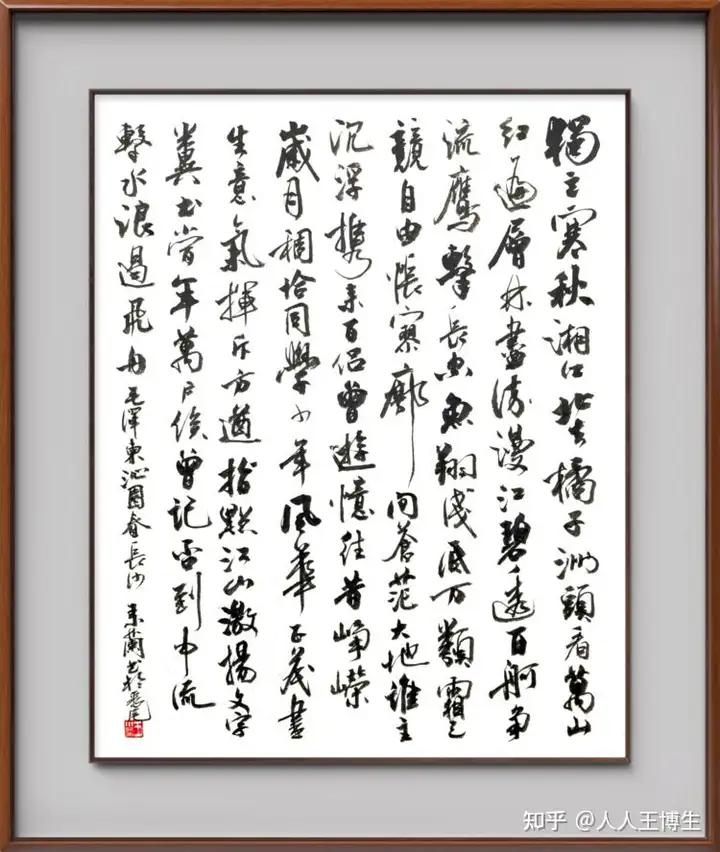 獨立寒秋湘江北去橘子洲頭看萬山
红遍層林盡染漫江碧透百舸争
流鷹擊長空魚翔淺底万類霜天
競自由悵寥廓問蒼茫大地誰主
沉浮携来百侣曾遊憶往昔峥嶸
歲月稠恰同學少年風華正茂書
生意氣揮斥方遒指點江山激揚文字
糞土當年萬户侯曾記否到中流
擊水浪遏飛舟 毛澤東沁園春長沙
知乎 @人人王博生